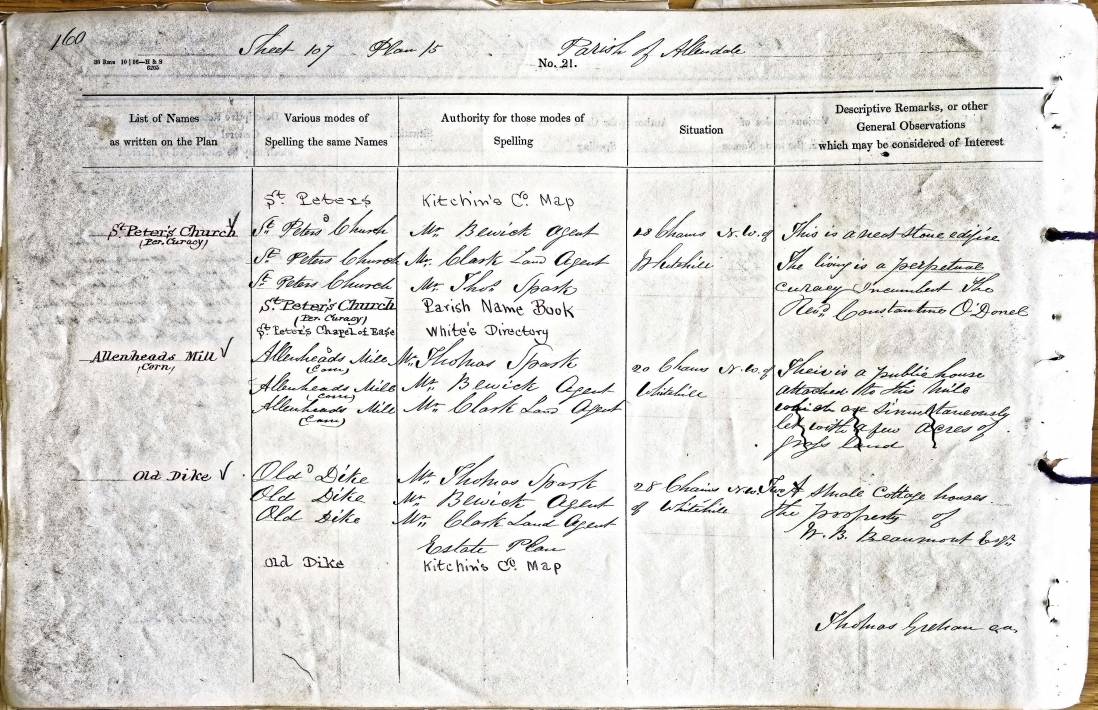 160
Sheet 107 Plan 15 Parish of Allendale
No. 21.
List of Names as written on the Plan
Various modes of Spelling the same Names
Authority for those modes of Spelling
Situation
Descriptive Remarks, or other General Observations which may be considered of Interest
St. Peters Kitchin's Co. Map
St. Peter's Church St. Peters Church Mr. Bewick Agent 28 Chains N.W. of This is a neat stone edifice
(Per. Curacy)
St. Peters Church Mr. Clark Land Agent Whitehill The living is a perpetual
St. Peters Church Mr. Thos. Spark curacy Incumbent The
St. Peter's Church Parish Name Book Revd. Constantine O'Donel
(Per. Curacy)
St. Peter's Chapel of Ease White's Directory
Allenheads Mill Allenheads Mill Mr. Thomas Spark 20 Chains N.W. of Their is a public house
(Corn) (Corn)
Allenheads Mill Mr. Bewick Agent Whitehill attached to this Mill
(Corn)
Allenheads Mill Mr. Clark Land Agent which are Simultaneously
(Corn)
let with a few acres of
grass land
Old Dike Old Dike Mr. Thomas Spark 28 Chains N.W. Two small Cottage houses
Old Dike Mr. Bewick Agent of Whitehill the property of
Old Dike Mr. Clark Land Agent W. B. Beaumont Esqr.
Estate Plan
Old Dike Kitchin's Co. Map
Thomas Grehan c.a.